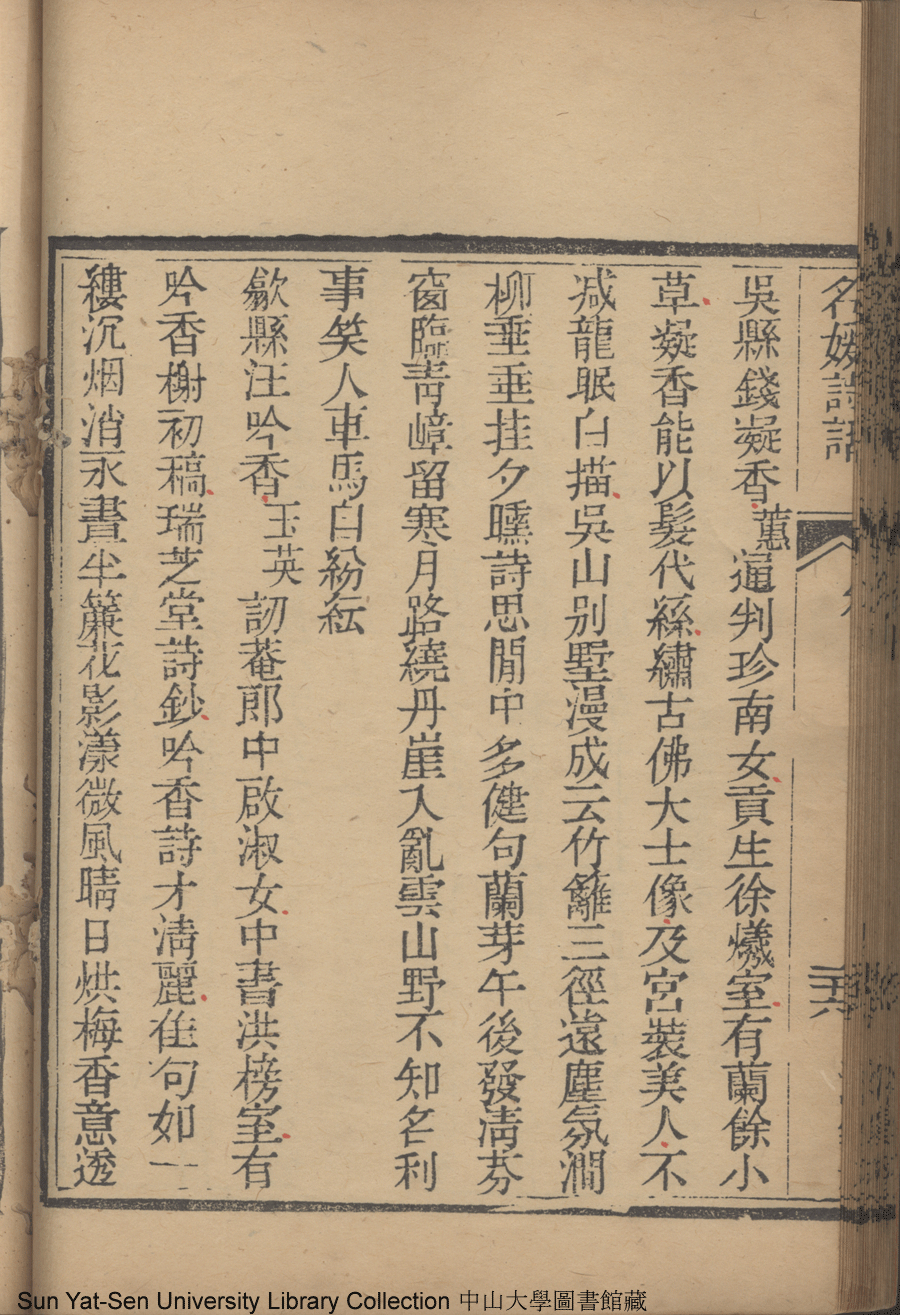 名媛詩話
二十六
吳縣錢凝香蕙通判珍南女貢生徐爔室有蘭餘小
草凝香能以髮代絲繡古佛大士像及宮裝美人不
減龍眠白描吳山别墅漫成云竹籬三徑遠塵氛澗
柳垂垂挂夕曛詩思閒中多健句蘭芽午後發淸芬
窗臨靑嶂留寒月路繞丹崖入亂雲山野不知名利
事笑人車馬白紛紜
歙縣汪吟香玉英訒菴郎中啟淑女中書洪榜室有
吟香榭初稿瑞芝堂詩鈔吟香詩才淸麗佳句如一
縷沉烟消永晝半簾花影漾微風晴日烘梅香意透
Sun Yat-Sen University Library Collection 中山大學圖書館藏